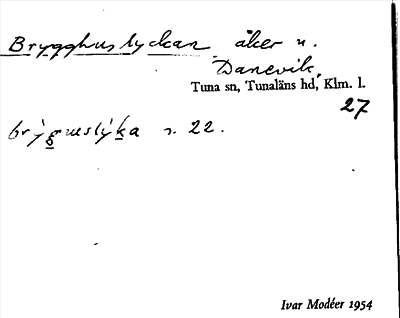 Brygghuslyckan åker u.
Danevik,
Tuna sn, Tunaläns hd, Klm. l.
27
s. 22.
Ivar Modéer 1954